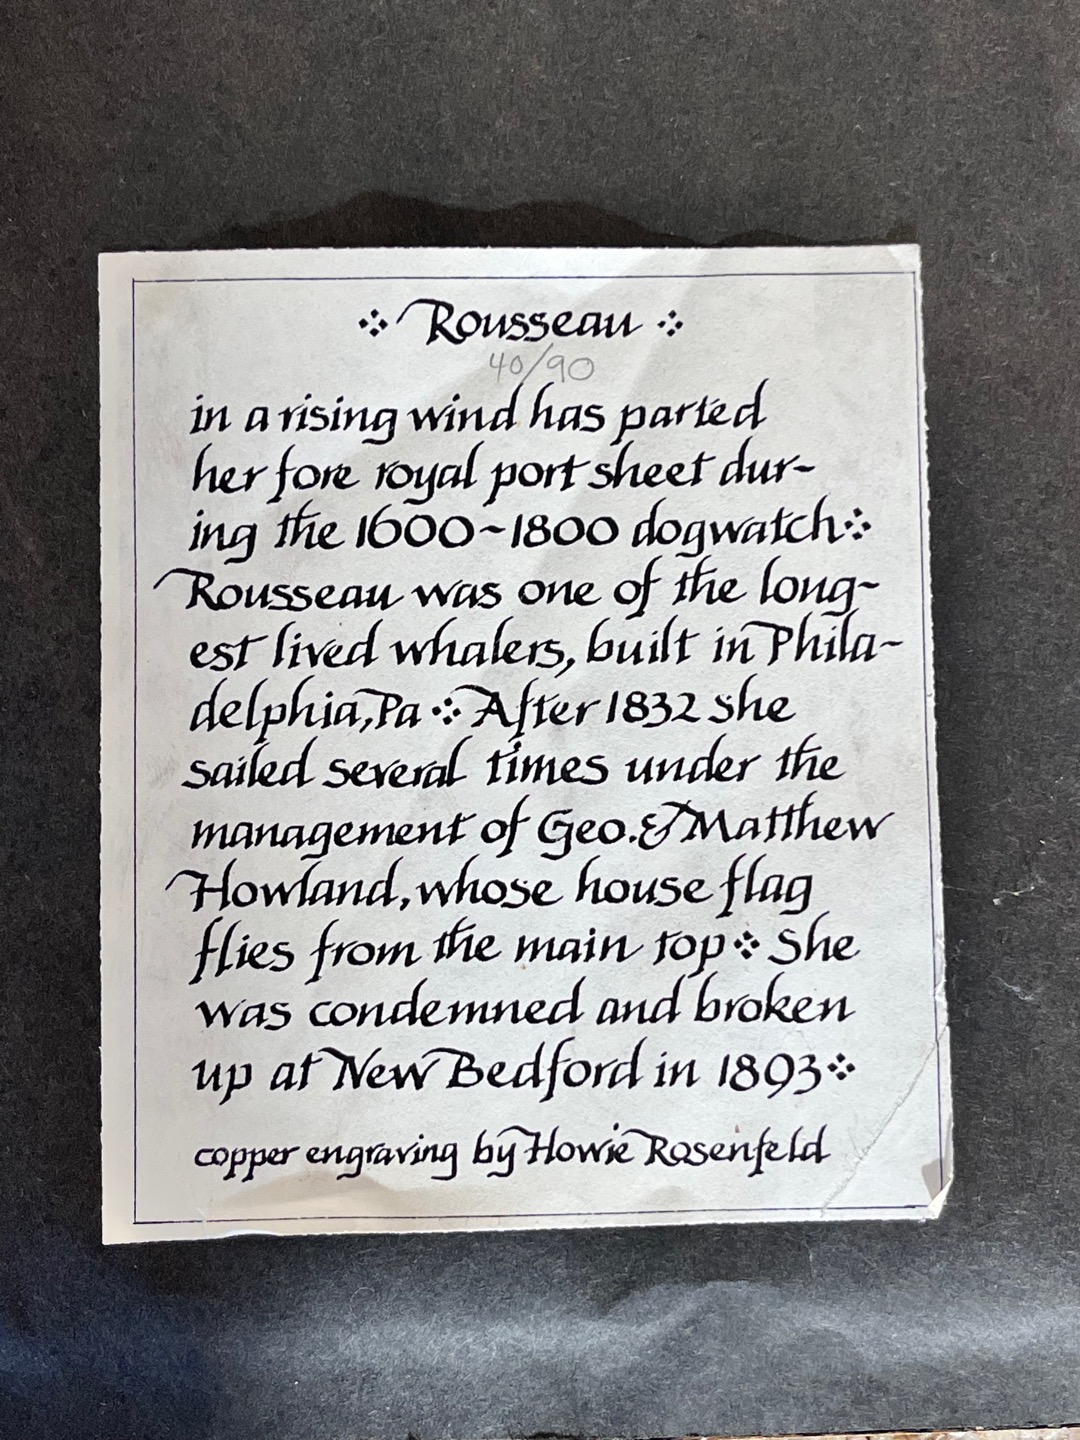 ⁘ Rousseau ⁘
40/90
in a rising wind has parted
her fore royal port sheet dur-
ing the 1600~1800 dogwatch⁘
Rousseau was one of the long-
est lived whalers, built in Phila-
delphia, Pa ⁘ After 1832 she
sailed several times under the
management of Geo. & Matthew
Howland, whose house flag
flies from the main top ⁘ She
was condemned and broken
up at New Bedford in 1893⁘
copper engraving by Howie Rosenfeld